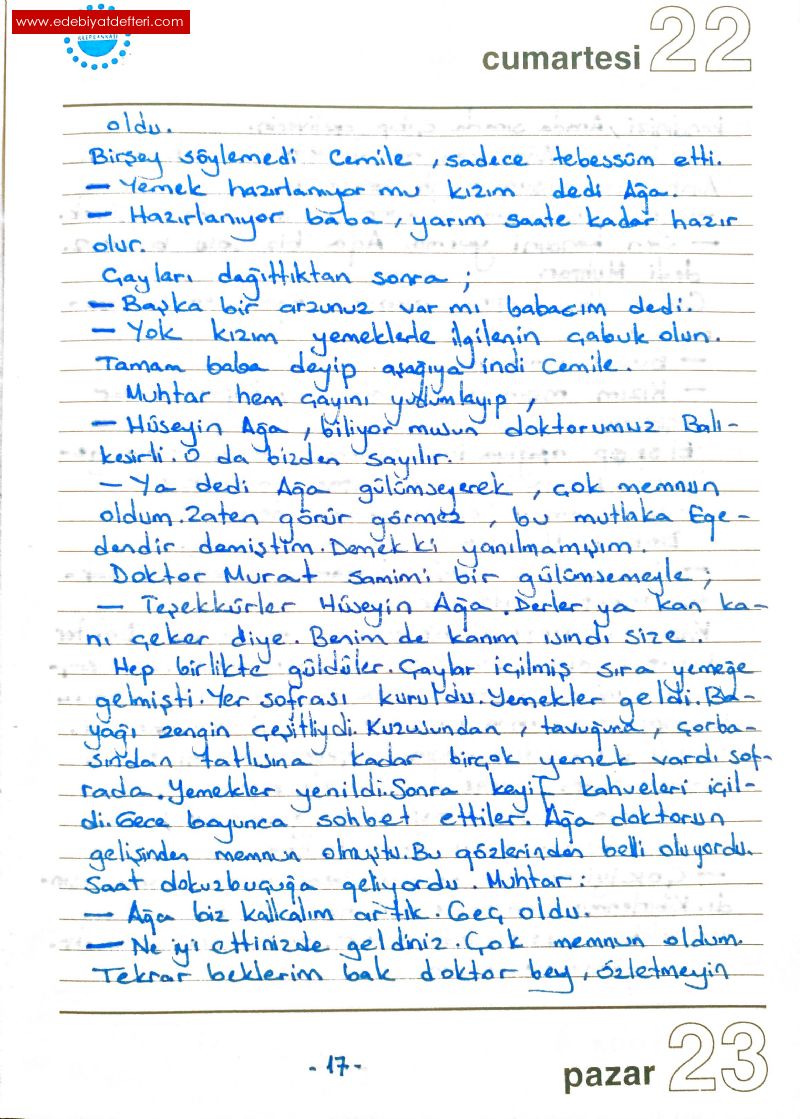 www.edebiyatdefteri.com
cumartesi 22
oldu.
Birşey söylemedi Cemile, sadece tebessüm etti.
— Yemek hazırlanıyor mu kızım dedi Ağa.
— Hazırlanıyor baba, yarım saate kadar hazır
olur.
Çayları dağıttıktan sonra;
— Başka bir arzunuz var mı babacım dedi.
— Yok kızım yemeklerle ilgilenin çabuk olun.
Tamam baba deyip aşağıya indi Cemile.
Muhtar hem çayını yudumlayıp,
— Hüseyin Ağa, biliyor musun doktorumuz Balı-
kesirli. O da bizden sayılır.
— Ya dedi Ağa gülümseyerek, çok memnun
oldum. Zaten görür görmez, bu mutlaka Ege-
dendir demiştim. Demek ki yanılmamışım.
Doktor Murat samimi bir gülümsemeyle;
— Teşekkürler Hüseyin Ağa. Derler ya kan ka-
nı çeker diye. Benim de kanım ısındı size.
Hep birlikte güldüler. Çaylar içilmiş sıra yemeğe
gelmişti. Yer sofrası kuruldu. Yemekler geldi. Ba-
yağı zengin çeşitliydi. Kuzusundan, tavuğuna, çorba-
sından tatlısına kadar birçok yemek vardı sof-
rada. Yemekler yenildi. Sonra keyif kahveleri içil-
di. Gece boyunca sohbet ettiler. Ağa doktorun
gelişinden memnun olmuştu. Bu gözlerinden belli oluyordu.
Saat dokuzbuçuğa geliyordu. Muhtar:
— Ağa biz kalkalım artık. Geç oldu.
— Ne iyi ettinizde geldiniz. Çok memnun oldum.
Tekrar beklerim bak doktor bey, özletmeyin
- 17 -
pazar 23